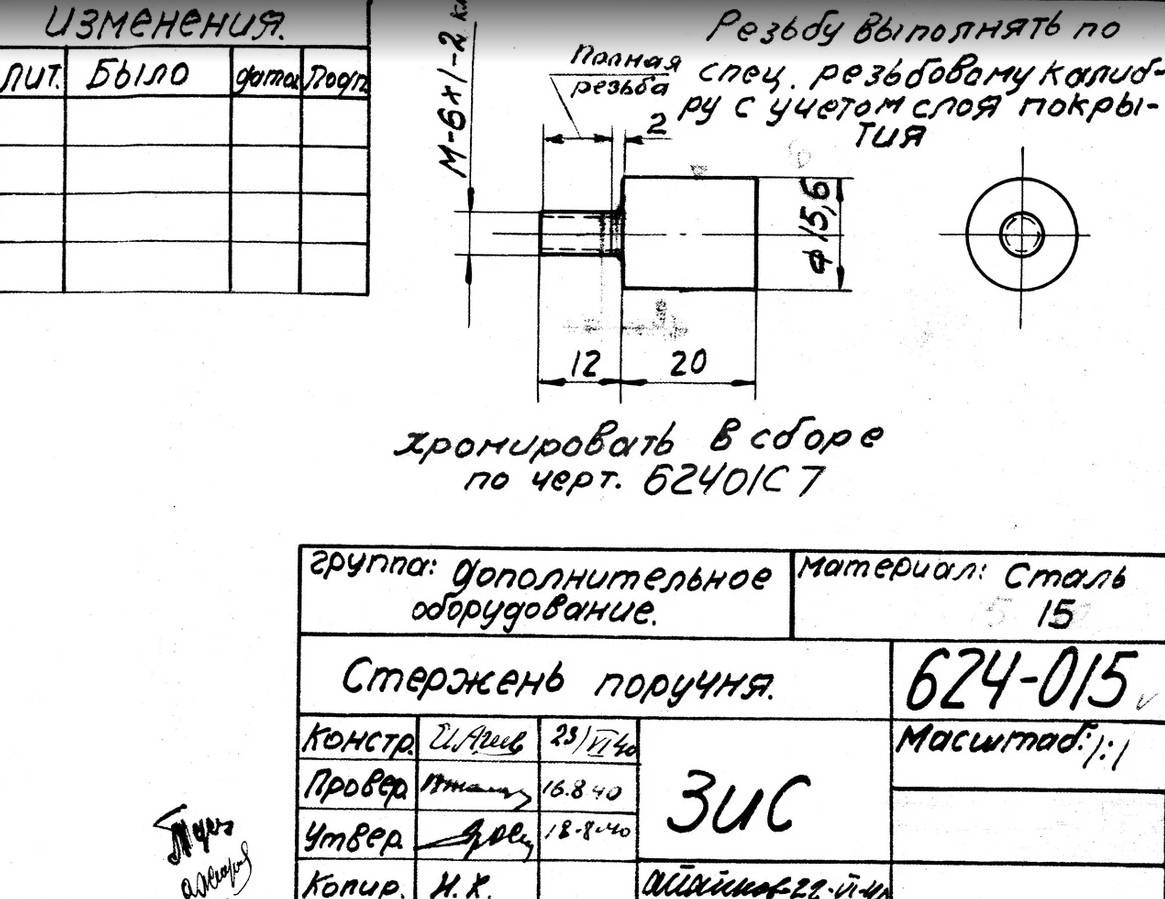 Изменения.
Лит. Было дата Подп.
М-6х1-2 кл
Полная
резьба
2
Резьбу выполнять по
спец. резьбовому калиб-
ру с учетом слоя покры-
тия
ф 15,6
12 20
хромировать в сборе
по черт. 62401С7
группа: дополнительное
оборудование.
материал: Сталь
15
Стержень поручня.
624-015
Констр. 23/VI 40
Провер. 16.8 40
Утвер. 18-8-40
Копир. Н.Х.
ЗиС
Масштаб: 1:1